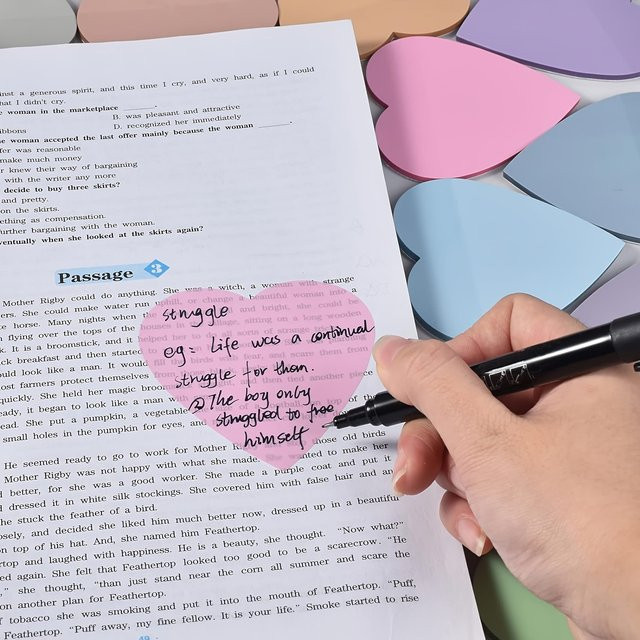 inst a generous spirit, and this time I cry, and very hard, as if I could
hat I didn't cry.
e woman in the marketplace ______.
B. was pleasant and attractive
ibbons
D. recognized her immediately
e woman accepted the last offer mainly because the woman ______.
fer was reasonable
make much money
r knew their way of bargaining
with the writer any more
decide to buy three skirts?
and pretty.
on the skirts.
ething as compensation.
urther bargaining with the woman.
ventually when she looked at the skirts again?
Passage 3
Mother Rigby could do anything. She was a witch, a woman with strange
ers. She could make water run uphill, or change a beautiful woman into a
te horse. Many nights when
n flying over the tops of the houses
k. It is a broomstick, and it helped her to do
ick breakfast and then started
uld look like a man. It would fear, and scare them from
ost farmers protect themselves
s. She held her magic broomstick then another piece
eady, it began to look like a man
ead. She put a pumpkin, a vegetable top of the
small holes in the pumpkin for eyes, and
struggle
eg: Life was a continual
struggle for them.
② The boy only
struggled to free
himself
He seemed ready to go to work for Mother those old birds
Mother Rigby was not happy with what she made. She wanted to make her
d better, for she was a good worker. She made a purple coat and put it
d dressed it in white silk stockings. She covered him with false hair and an
he stuck the feather of a bird.
osely, and decided she liked him much better now, dressed up in a beautiful
on top of his hat. And, she named him Feathertop.
rtop and laughed with happiness. He is a beauty, she thought. "Now what?"
ed again. She felt that Feathertop looked too good to be a scarecrow. "He
," she thought, "than just stand near the corn all summer and scare the
on another plan for Feathertop.
f tobacco she was smoking and put it into the mouth of Feathertop. "Puff,
Feathertop. "Puff away, my fine fellow. It is your life." Smoke started to rise
49